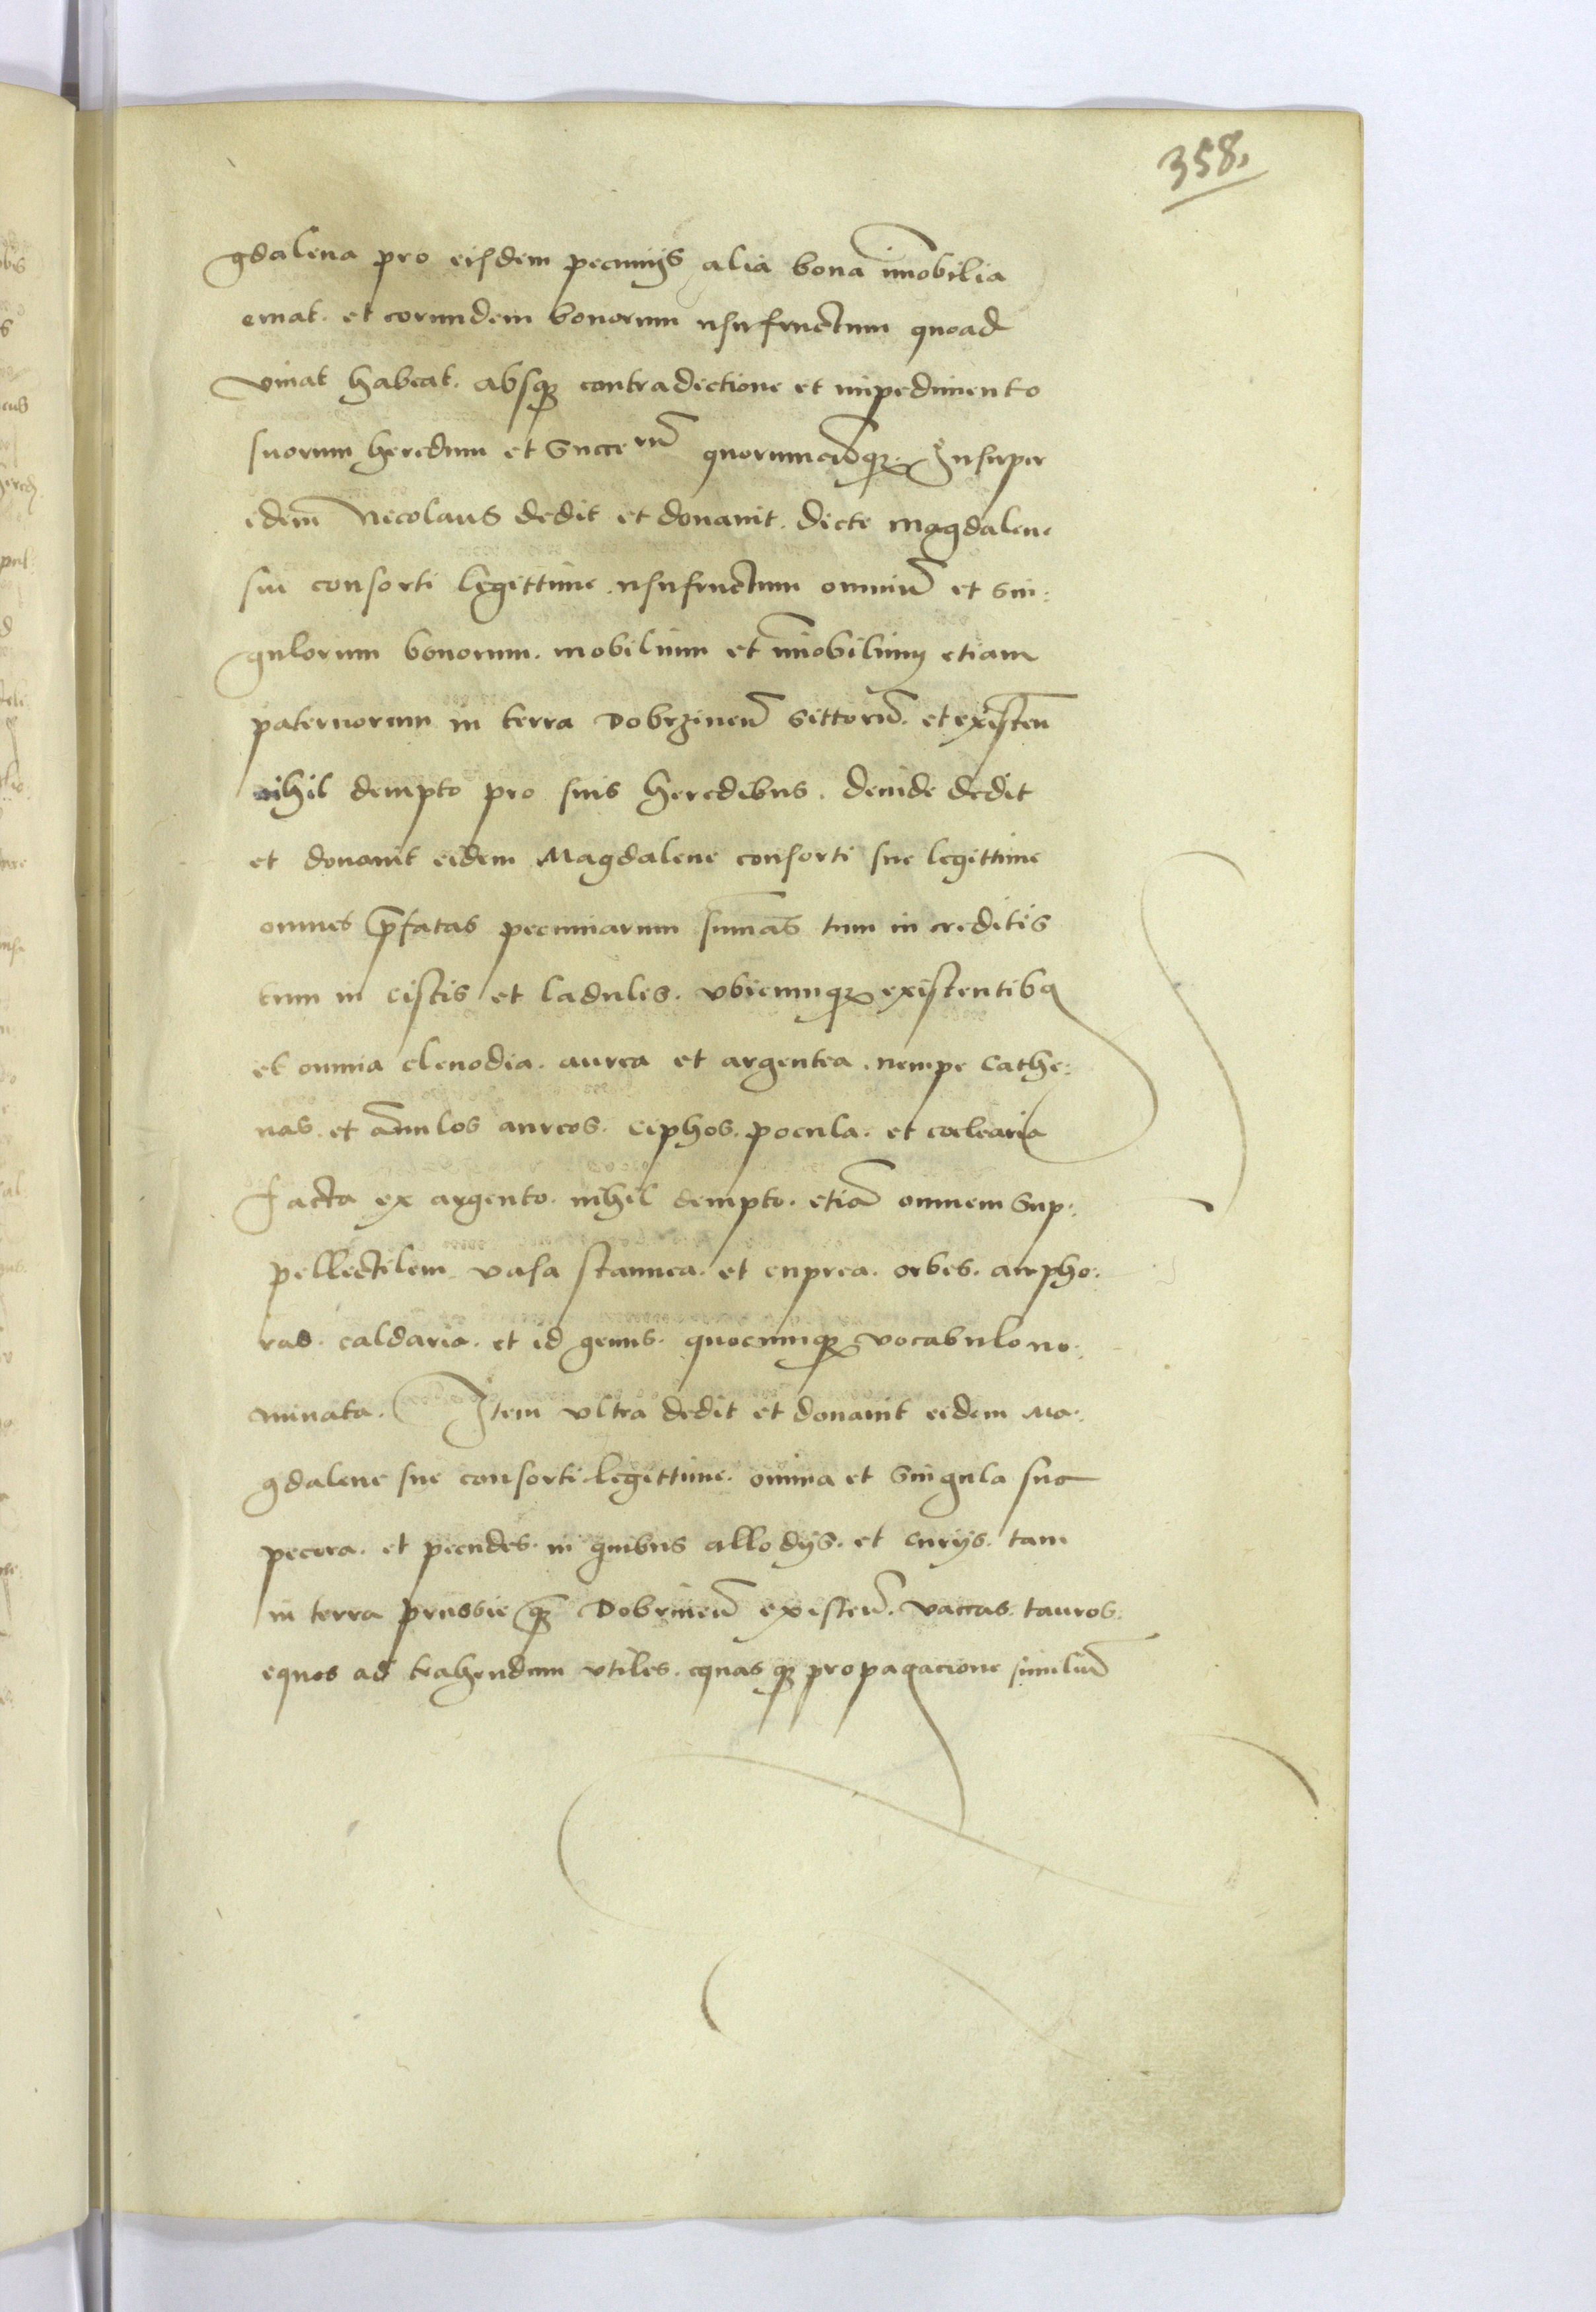 358.
gdalena pro eisdem pecunijs alia bona im̄obilia
emat. et eorundem bonorum usufructum quoad
vivat habeat. absq3 contradictione et impedimento
suorum heredum et Succe rū quorumcūq3. Insuper
idem̄ Nicolaus dedit et donavit. dicte Magdalene
sui consorti legittime. usufructum omniū et Sin:
gulorum bonorum. mobilium et im̄obilium etiam
paternorum in terra Dobrzineñ Sittorū. et existeñ
nihil dempto pro suis heredibus. deinde dedit
et donavit eidem Magdalene consorti sue legittime
omnes p̄fatas pecuniarum sum̄as tum in creditis
tum in cistis et ladulis. ubicumq3 existentib9
et omnia clenodia. aurea et argentea. nempe Cathe:
nas. et an̄ulos aureos. Ciphos. pocula. et coclearia
facta ex argento. nihil dempto. etiā omnem Sup:
pellectilem vasa stannea. et cuprea. orbes. ampho:
ras. caldaria. et id genus. quocumq3 vocabulo no:
minata. Item ultra dedit et donavit eidem Ma:
gdalene sue consorti legittime. omnia et Singula sua
pecora. et pecudes. in quibus allodijs. et curijs. tam
in terra prussie q3 Dobrineñ existeñ. vaccas. tauros.
equos ad trahendum utiles. equas q3 propagacione similiū